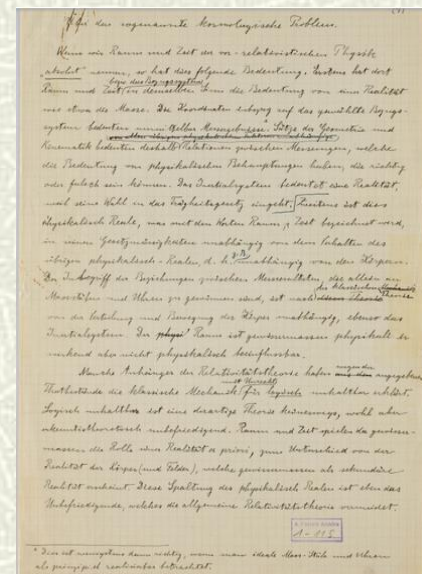 (1)
das sogenannte kosmologische Problem.
Wenn wir Raum und Zeit der vor-relativistischen Physik
"absolut" nennen, so hat dies folgende Bedeutung. Erstens hat dort
bezw. das Bezugssystem
Raum und Zeit, in demselben Sinn die Bedeutung von einer Realität
wie etwa die Masse. Die Koordinaten inbezug auf das gewählte Bezugs-
system bedeuten unmittelbar Messergebnisse.* Sätze der Geometrie und
Kinematik bedeuten deshalb Relationen zwischen Messungen, welche
die Bedeutung von physikalischen Behauptungen haben, die richtig
oder falsch sein können. Das Inertialsystem bedeutet eine Realität,
weil seine Wahl in das Trägheitsgesetz eingeht. Zweitens ist dies
Physikalisch Reale, was mit den Worten Raum, Zeit bezeichnet wird,
in seinen Gesetzmässigkeiten unabhängig von dem Verhalten des
übrigen physikalisch-Realen, d. h. z. B. unabhängig von den Körpern.
Der Inbegriff der Beziehungen zwischen Messresultaten, die allein an
Massstäben und Uhren zu gewinnen sind, ist nach
der klassischen Theorie
von der Verteilung und Bewegung der Körper unabhängig, ebenso das
Inertialsystem. Der Raum ist gewissermassen physikalisch
wirkend aber nicht physikalisch beeinflussbar.
Manche Anhänger der Relativitätstheorie haben wegen der angegebenen
mit Unrecht
Thatbestände die klassische Mechanik für logisch unhaltbar erklärt.
Logisch unhaltbar ist eine derartige Theorie keineswegs, wohl aber
erkenntnistheoretisch unbefriedigend. Raum und Zeit spielen da gewisser-
massen die Rolle einer Realität a priori, zum Unterschied von der
Realität der Körper (und Felder), welche gewissermassen als sekundäre
Realität erscheint. Diese Spaltung des physikalisch Realen ist eben das
Unbefriedigende, welches die allgemeine Relativitätstheorie vermeidet.
1-115
* Dies ist wenigstens dann richtig, wenn man ideale Mass-Stäbe und Uhren
als prinzipiell realisierbar betrachtet.